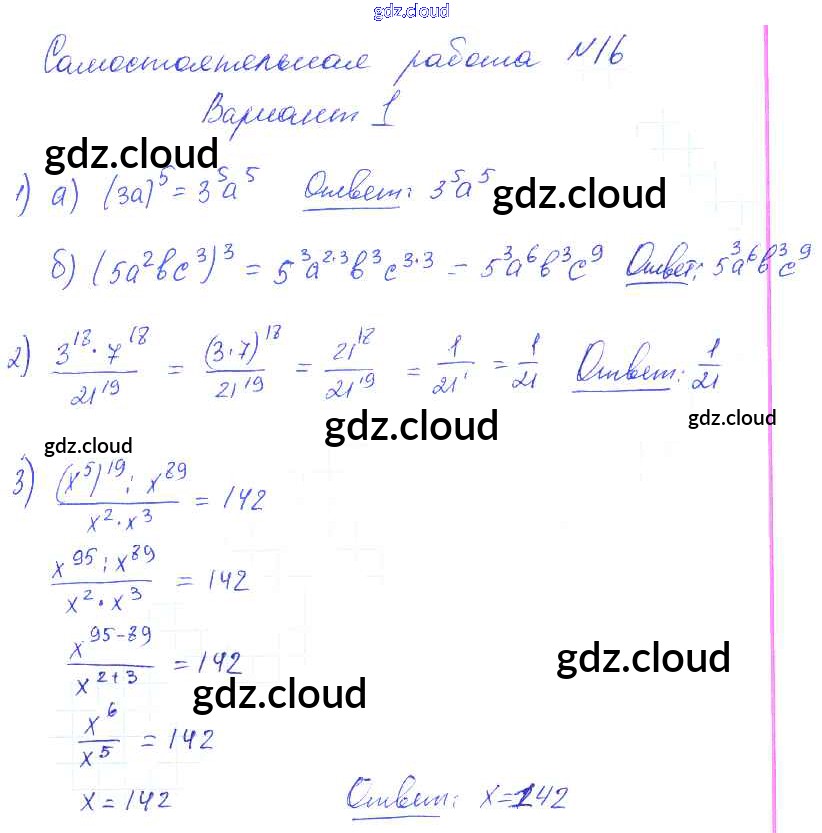 gdz.cloud
Самостоятельная работа №16
Вариант 1
gdz.cloud
1) а) (3a)^5 = 3^5a^5 Ответ: 3^5a^5
gdz.cloud
б) (5a^2bc^3)^3 = 5^3a^{2·3}b^3c^{3·3} = 5^3a^6b^3c^9 Ответ: 5^3a^6b^3c^9
2) \frac{3^{18}·7^{18}}{21^{19}} = \frac{(3·7)^{18}}{21^{19}} = \frac{21^{18}}{21^{19}} = \frac{1}{21^1} = \frac{1}{21} Ответ: \frac{1}{21}
gdz.cloud
gdz.cloud
gdz.cloud
3) \frac{(x^5)^{19} : x^{89}}{x^2·x^3} = 142
\frac{x^{95} : x^{89}}{x^2·x^3} = 142
\frac{x^{95-89}}{x^{2+3}} = 142
gdz.cloud
gdz.cloud
\frac{x^6}{x^5} = 142
x = 142 Ответ: x=142